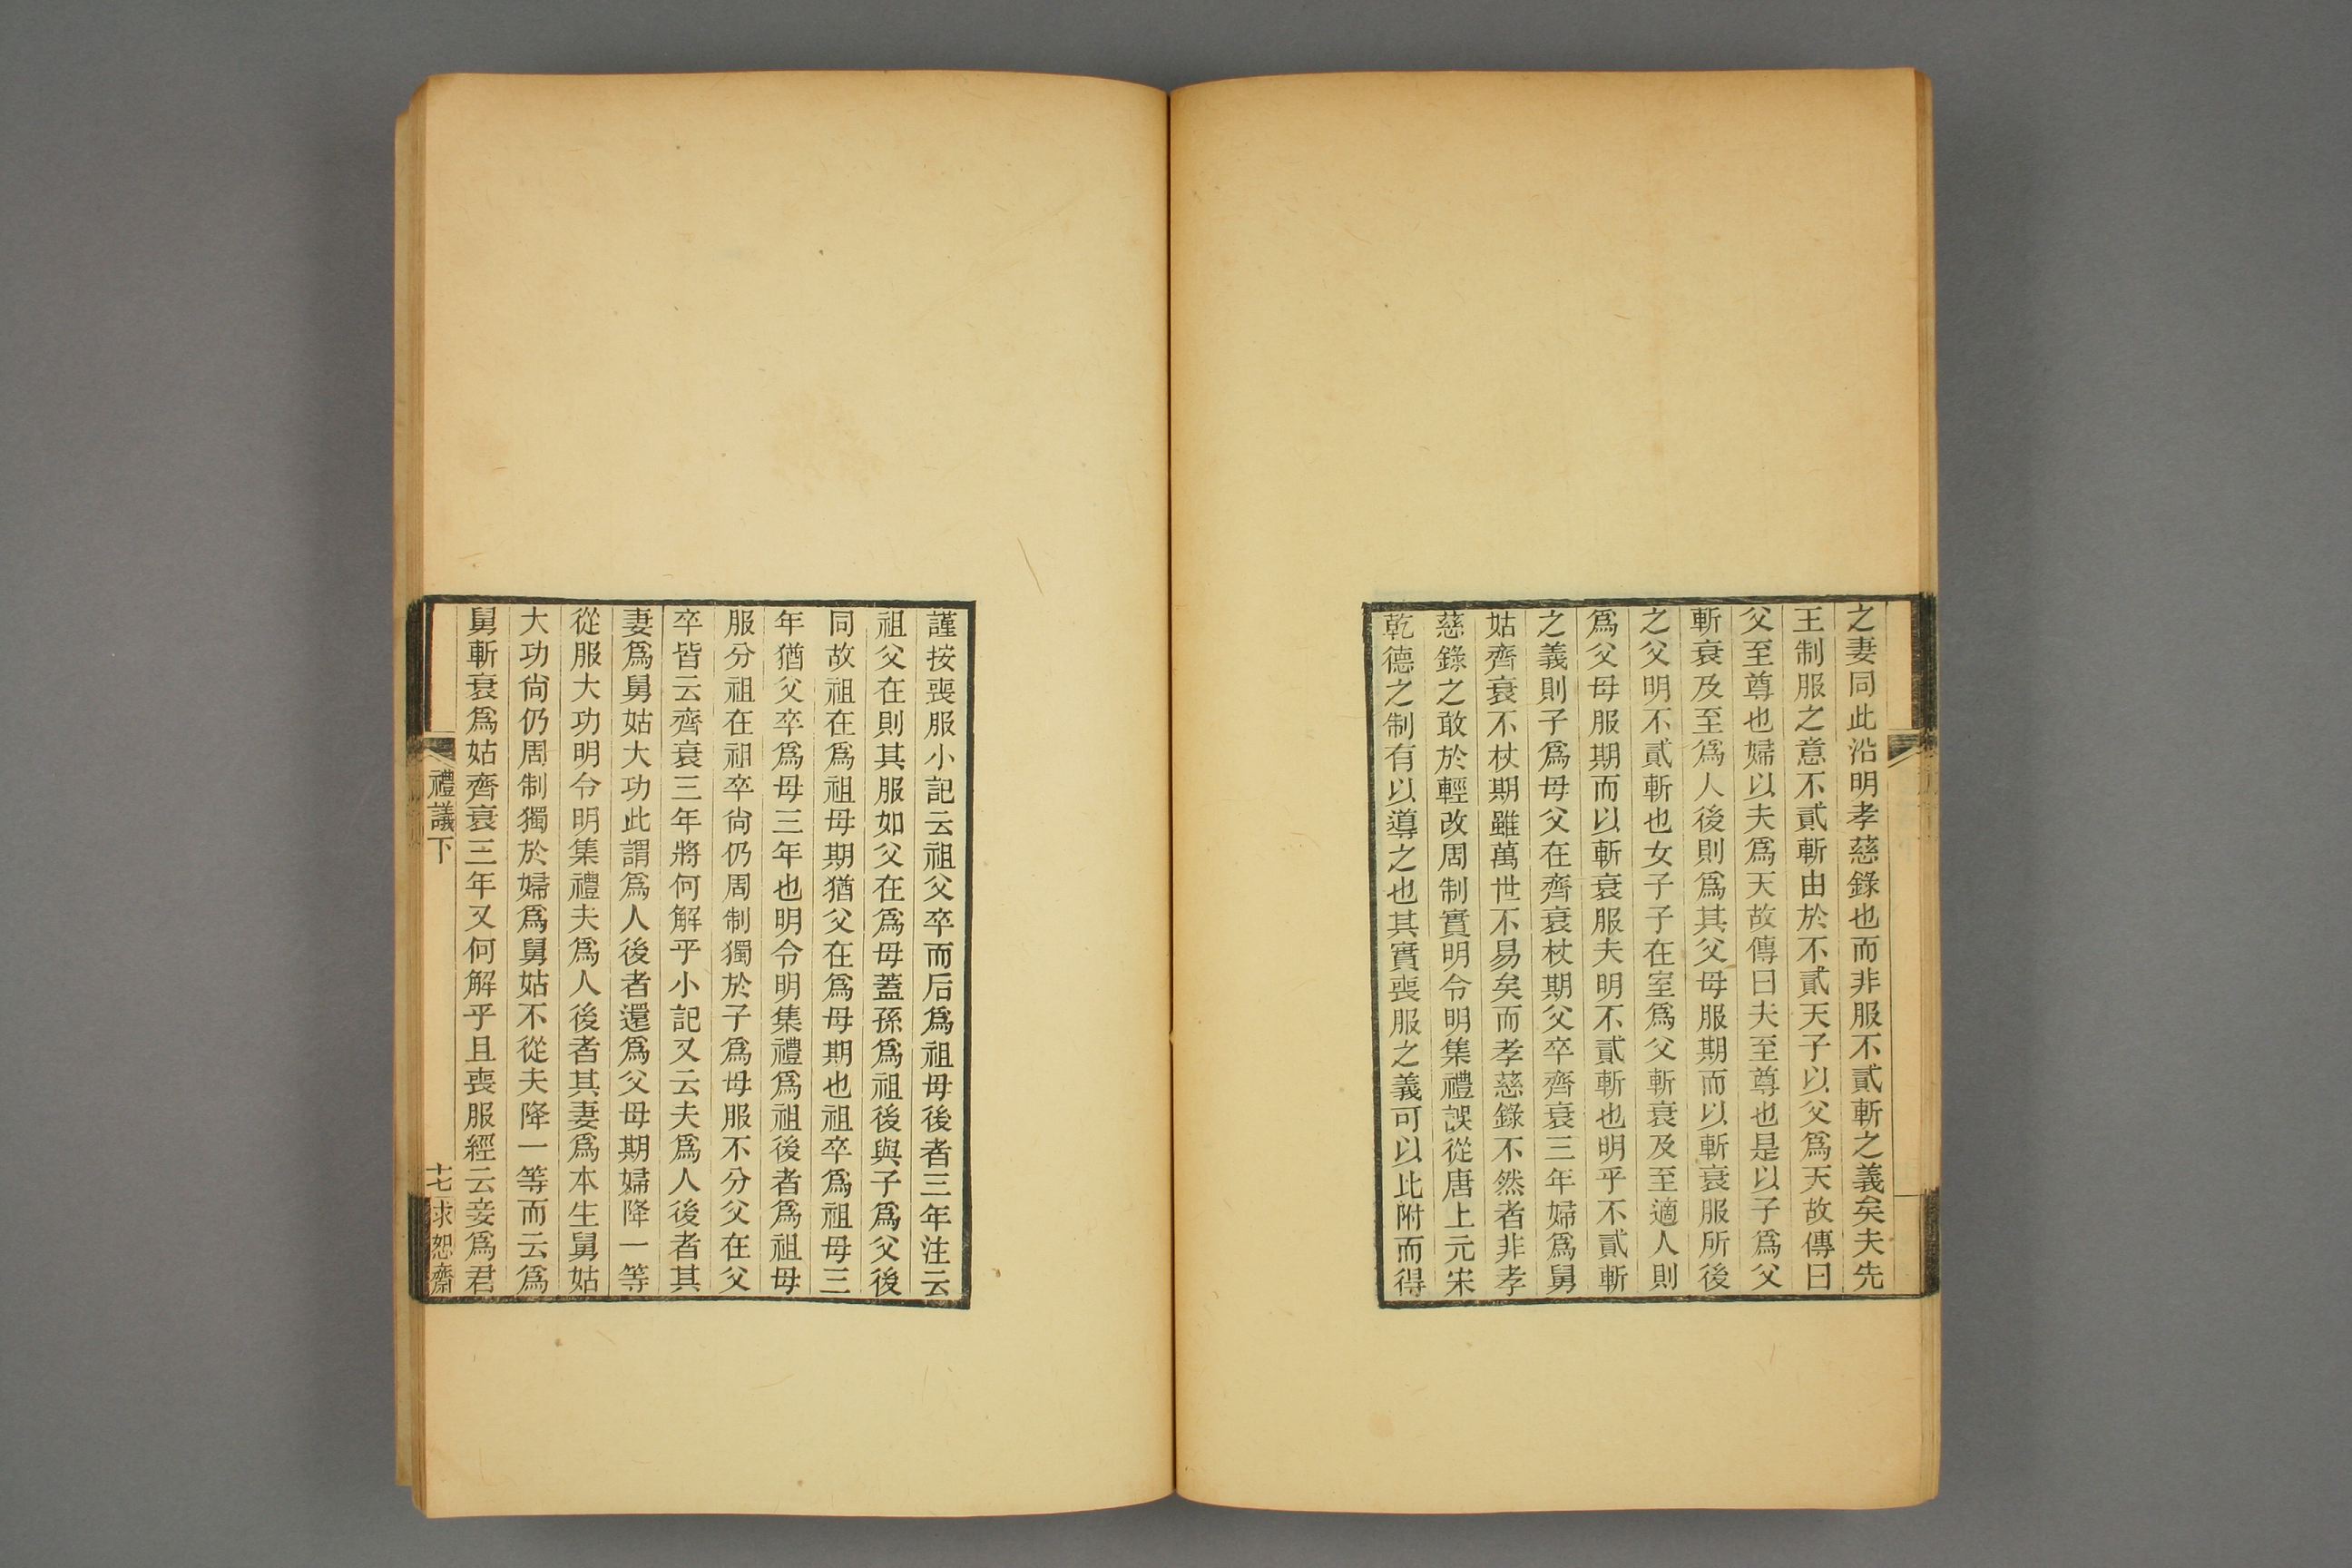 之妻同此沿明孝慈錄也而非服不貳斬之義矣夫先
王制服之意不貳斬由於不貳天子以父爲天故傳曰
父至尊也婦以夫爲天故傳曰夫至尊也是以子爲父
斬衰及至爲人後則爲其父母服期而以斬衰服所後
之父明不貳斬也女子子在室爲父斬衰及至適人則
爲父母服期而以斬衰服夫明不貳斬也明乎不貳斬
之義則子爲母父在齊衰杖期父卒齊衰三年婦爲舅
姑齊衰不杖期雖萬世不易矣而孝慈錄不然者非孝
慈錄之敢於輕改周制實明令明集禮誤從唐上元宋
乾德之制有以導之也其實喪服之義可以比附而得
謹按喪服小記云祖父卒而后爲祖母後者三年注云
祖父在則其服如父在爲母蓋孫爲祖後與子爲父後
同故祖在爲祖母期猶父在爲母期也祖卒爲祖母三
年猶父卒爲母三年也明令明集禮爲祖後者爲祖母
服分祖在祖卒尙仍周制獨於子爲母服不分父在父
卒皆云齊衰三年將何解乎小記又云夫爲人後者其
妻爲舅姑大功此謂爲人後者還爲父母期婦降一等
從服大功明令明集禮夫爲人後者其妻爲本生舅姑
大功尙仍周制獨於婦爲舅姑不從夫降一等而云爲
舅斬衰爲姑齊衰三年又何解乎且喪服經云妾爲君
禮議下
十七
求恕齋